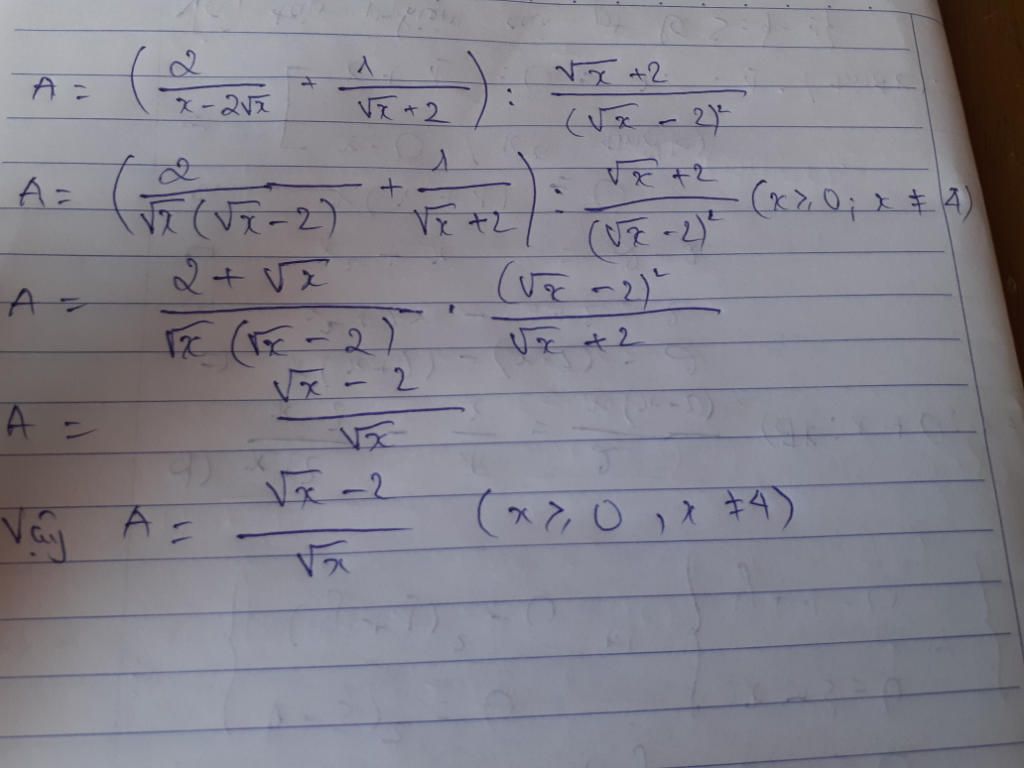 A = (2/(x - 2√x) + 1/(√x + 2)) : (√x + 2)/(√x - 2)²
A = (2/(√x(√x - 2)) + 1/(√x + 2)) : (√x + 2)/(√x - 2)² (x ≥ 0; x ≠ 4)
A = (2 + √x)/(√x(√x - 2)) · (√x - 2)²/(√x + 2)
A = (√x - 2)/√x
Vậy A = (√x - 2)/√x (x ≥ 0, x ≠ 4)